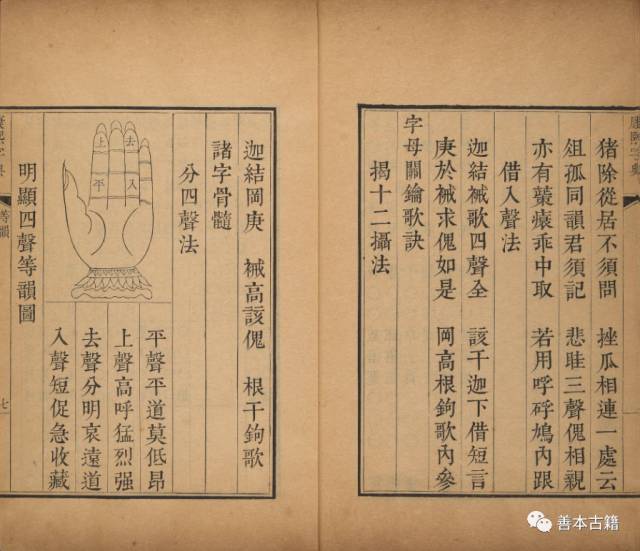 康熙字典
猪除從居不須問 挫瓜相連一處云
俎孤同韻君須記 悲睢三聲傀相親
亦有乖中取 若用呼鳩內跟
借入聲法
迦結裓歌四聲全 該干迦下借短言
庚於裓求傀如是 岡高根鉤歌內參
字母關鑰歌訣
揭十二攝法
迦結岡庚 裓高該傀 根干鉤歌
諸字骨髓
分四聲法
上 去
平 入
平聲平道莫低昂
上聲高呼猛烈强
去聲分明哀遠道
入聲短促急收藏
明顯四聲等韻圖
等韻 七
善本古籍